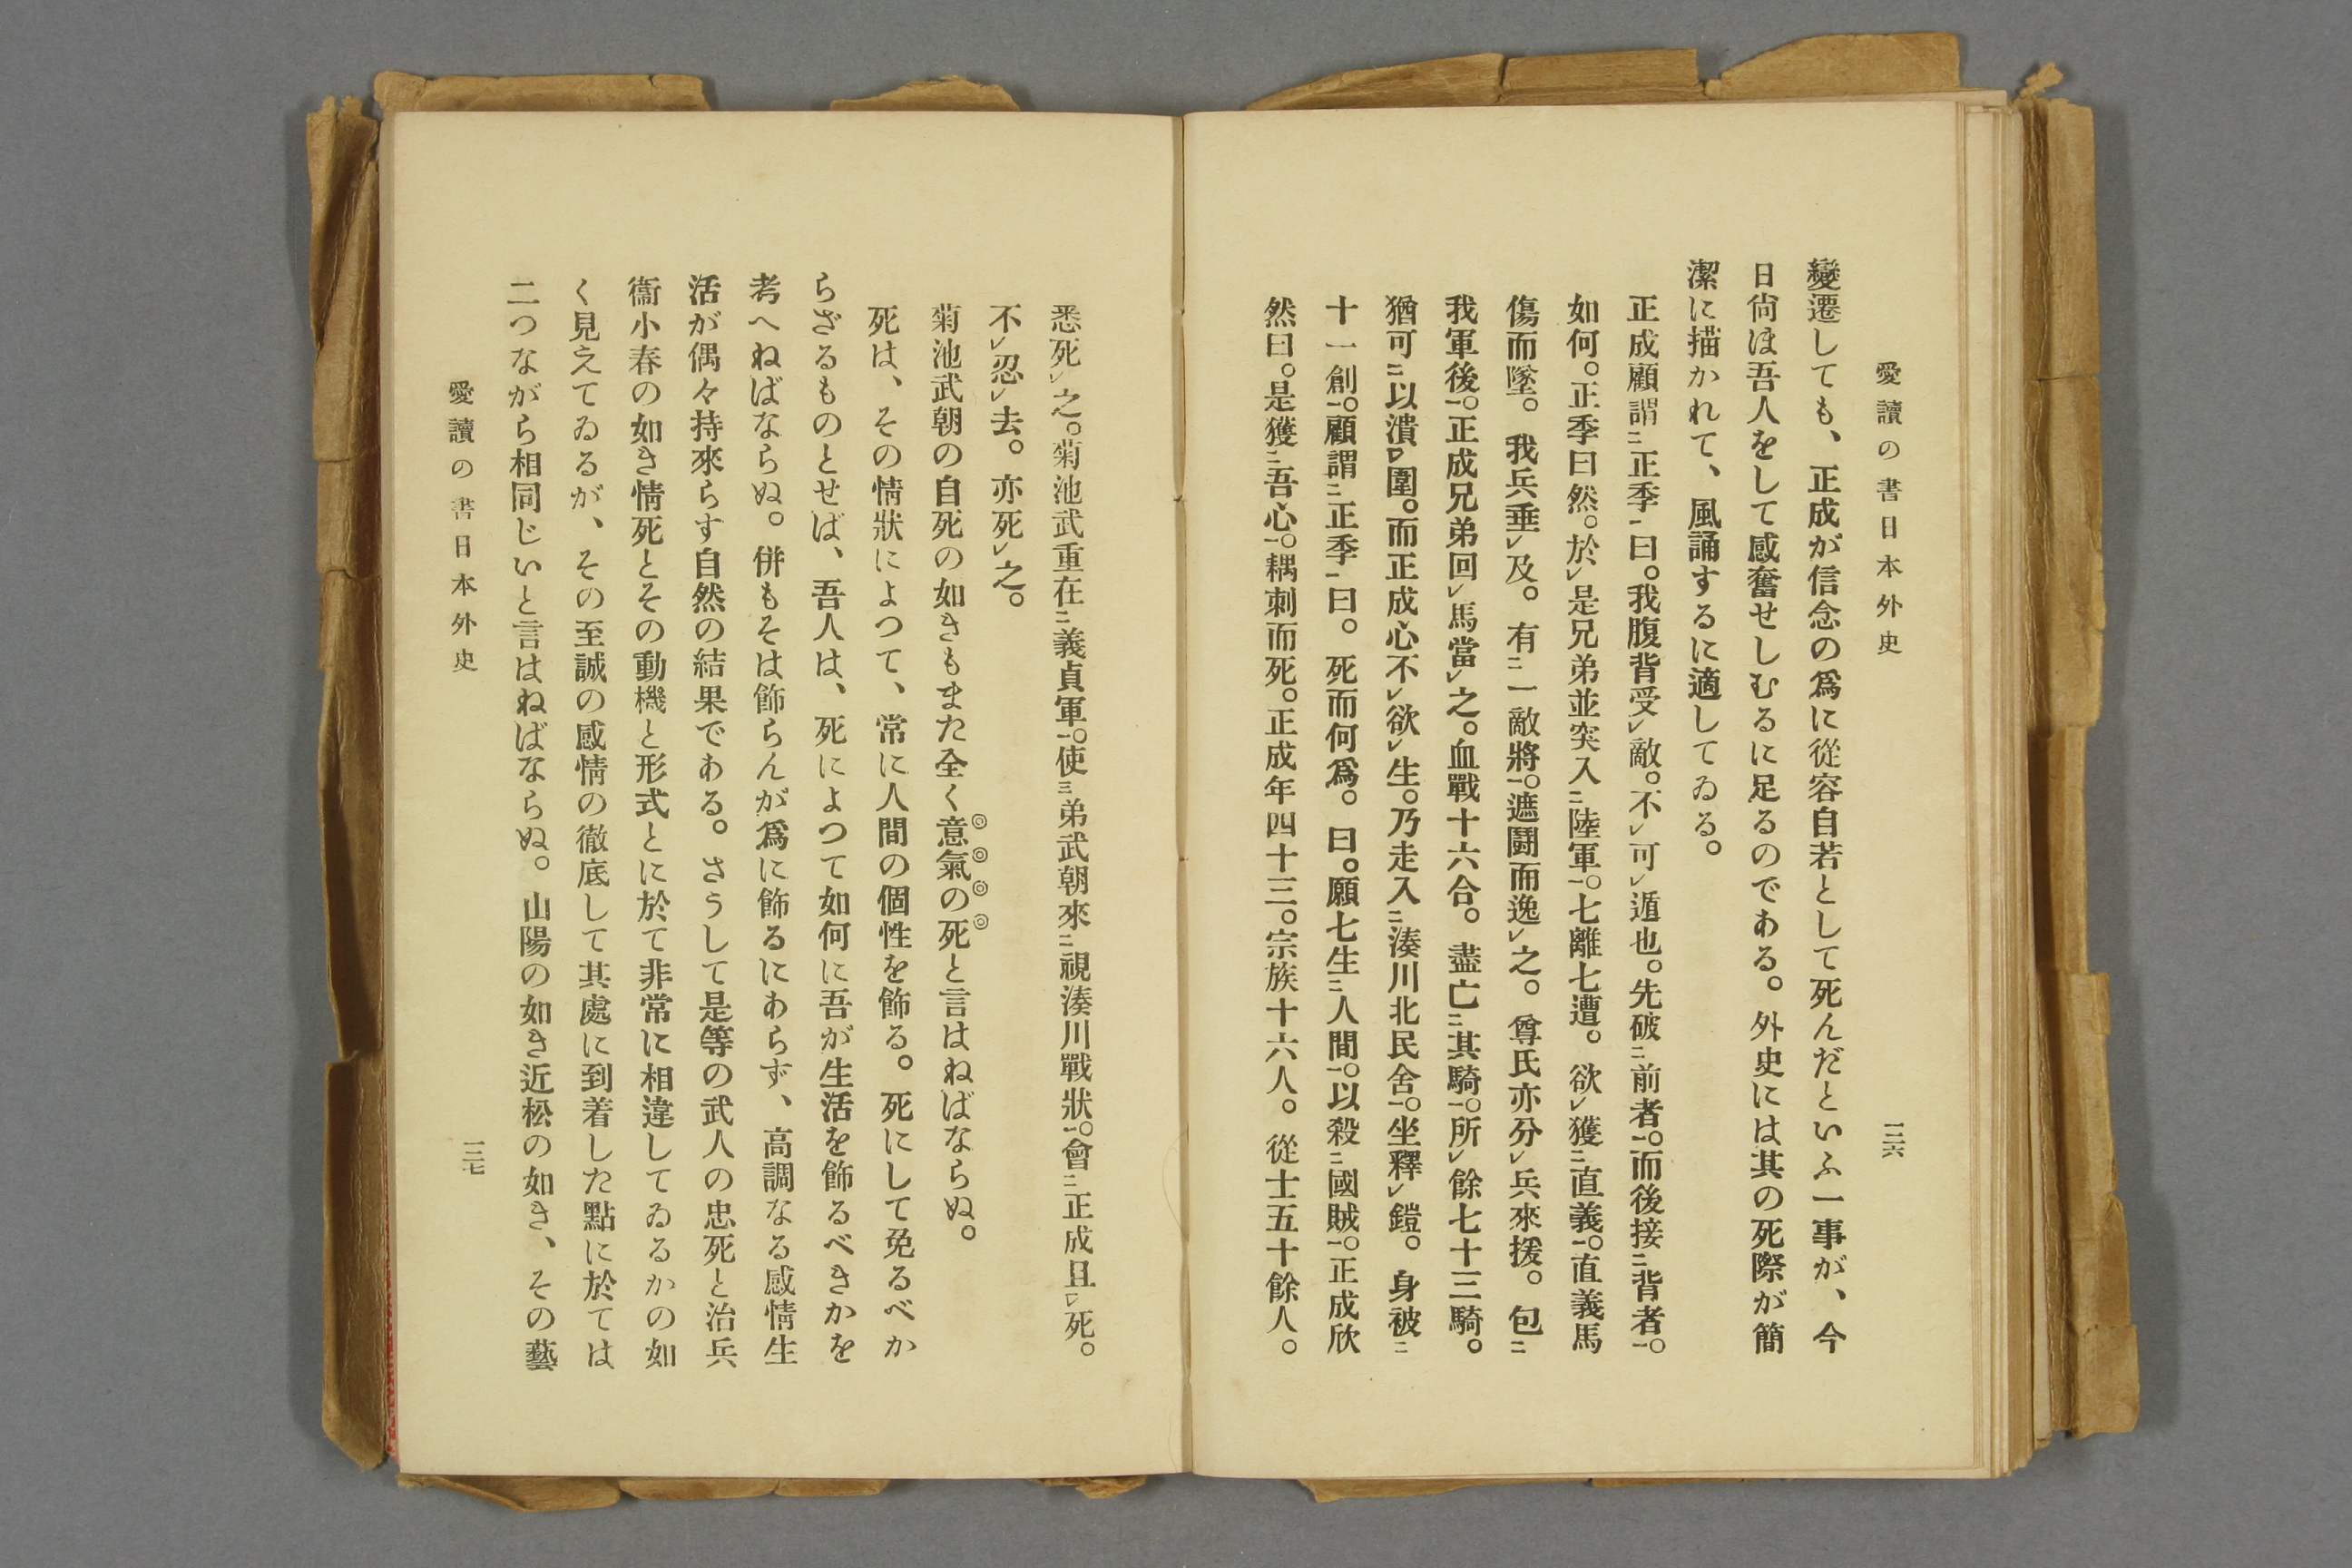 愛讀の書日本外史
一二六
變遷しても、正成が信念の爲に從容自若として死んだといふ一事が、今
日尙ほ吾人をして感奮せしむるに足るのである。外史には其の死際が簡
潔に描かれて、風誦するに適してゐる。
正成顧謂㆓正季㆒曰。我腹背受㆑敵。不㆑可㆑遁也。先破㆓前者㆒。而後接㆓背者㆒。
如何。正季曰然。於㆑是兄弟並突入㆓陸軍㆒。七離七遭。欲㆑獲㆓直義㆒。直義馬
傷而墜。我兵垂㆑及。有㆓一敵將㆒。遮鬪而逸㆑之。尊氏亦分㆑兵來援。包㆓
我軍後㆒。正成兄弟回㆑馬當㆑之。血戰十六合。盡亡㆓其騎㆒。所㆑餘七十三騎。
猶可㆓以潰㆒㆑圍。而正成心不㆑欲㆑生。乃走入㆓湊川北民舍㆒。坐釋㆑鎧。身被㆓
十一創㆒。顧謂㆓正季㆒曰。死而何爲。曰。願七生㆓人間㆒。以殺㆓國賊㆒。正成欣
然曰。是獲㆓吾心㆒。耦刺而死。正成年四十三。宗族十六人。從士五十餘人。
悉死㆑之。菊池武重在㆓義貞軍㆒。使㆔弟武朝來㆓視湊川戰狀㆒。會㆓正成且㆒㆑死。
不㆑忍㆑去。亦死㆑之。
菊池武朝の自死の如きもまた全く意氣の死と言はねばならぬ。
死は、その情狀によつて、常に人間の個性を飾る。死にして免るべか
らざるものとせば、吾人は、死によつて如何に吾が生活を飾るべきかを
考へねばならぬ。併もそは飾らんが爲に飾るにあらず、高調なる感情生
活が偶々持來らす自然の結果である。さうして是等の武人の忠死と治兵
衞小春の如き情死とその動機と形式とに於て非常に相違してゐるかの如
く見えてゐるが、その至誠の感情の徹底して其處に到着した點に於ては
二つながら相同じいと言はねばならぬ。山陽の如き近松の如き、その藝
愛讀の書日本外史
一二七